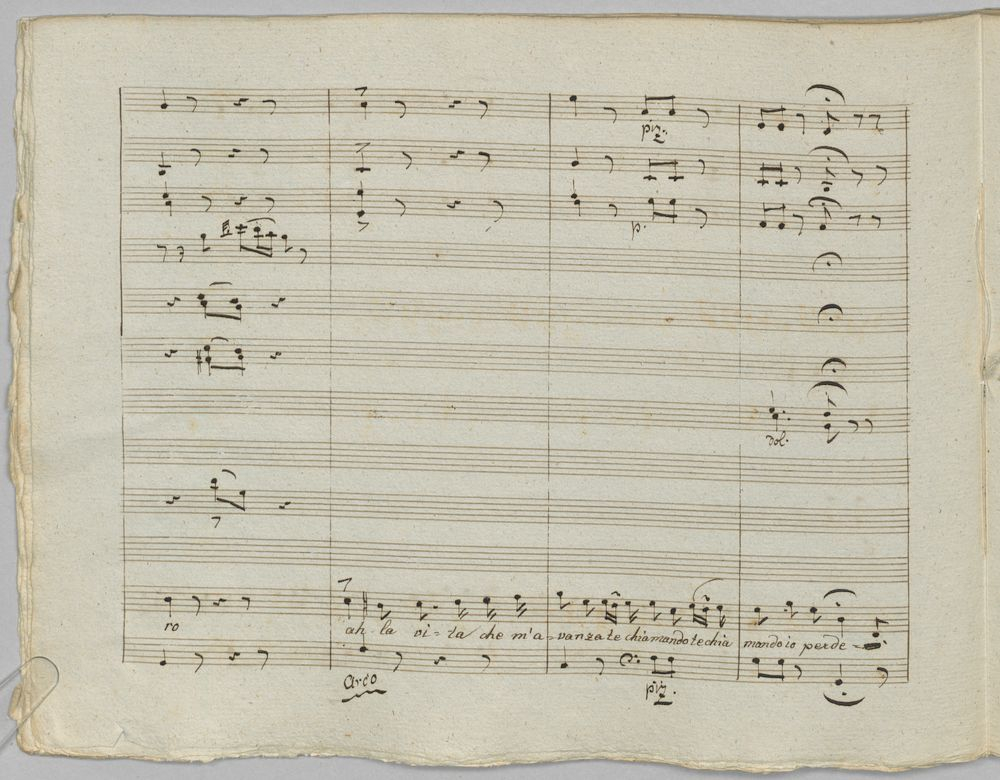 piz.
p.
dol.
ro ah la vi = ta che m'a = vanza te chiamando te chia mando io perde =
Arco
piz.